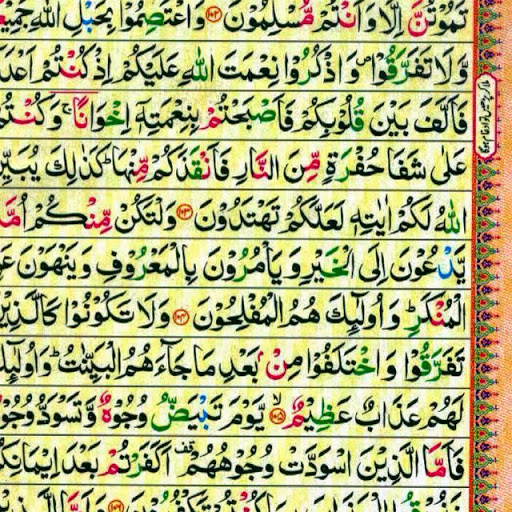 تَمُوْتُنَّ اِلَّا وَاَنْتُمْ مُّسْلِمُوْنَ ۝۱۰۲ وَاعْتَصِمُوْا بِحَبْلِ اللّٰهِ جَمِيْعًا
وَّلَا تَفَرَّقُوْا ۪ وَاذْكُرُوْا نِعْمَتَ اللّٰهِ عَلَيْكُمْ اِذْ كُنْتُمْ
فَاَلَّفَ بَيْنَ قُلُوْبِكُمْ فَاَصْبَحْتُمْ بِنِعْمَتِهٖٓ اِخْوَانًا ۚ
عَلٰى شَفَا حُفْرَةٍ مِّنَ النَّارِ فَاَنْقَذَكُمْ مِّنْهَا ؕ كَذٰلِكَ
اللّٰهُ لَكُمْ اٰيٰتِهٖ لَعَلَّكُمْ تَهْتَدُوْنَ ۝۱۰۳ وَلْتَكُنْ مِّنْكُمْ
يَّدْعُوْنَ اِلَى الْخَيْرِ وَيَاْمُرُوْنَ بِالْمَعْرُوْفِ وَيَنْهَوْنَ
الْمُنْكَرِ ؕ وَاُولٰٓئِكَ هُمُ الْمُفْلِحُوْنَ ۝۱۰۴ وَلَا تَكُوْنُوْا كَالَّذِيْنَ
تَفَرَّقُوْا وَاخْتَلَفُوْا مِنْۢ بَعْدِ مَا جَآءَهُمُ الْبَيِّنٰتُ ؕ وَاُولٰٓئِكَ
لَهُمْ عَذَابٌ عَظِيْمٌ ۝۱۰۵ۙ يَّوْمَ تَبْيَضُّ وُجُوْهٌ وَّتَسْوَدُّ
فَاَمَّا الَّذِيْنَ اسْوَدَّتْ وُجُوْهُهُمْ ۫ اَكَفَرْتُمْ بَعْدَ